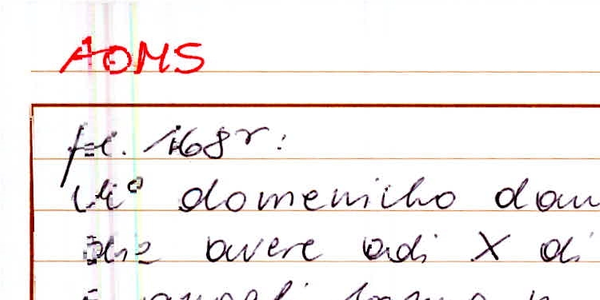 AOMS
fol. 168r:
M° domenicho dom
die avere adi X di